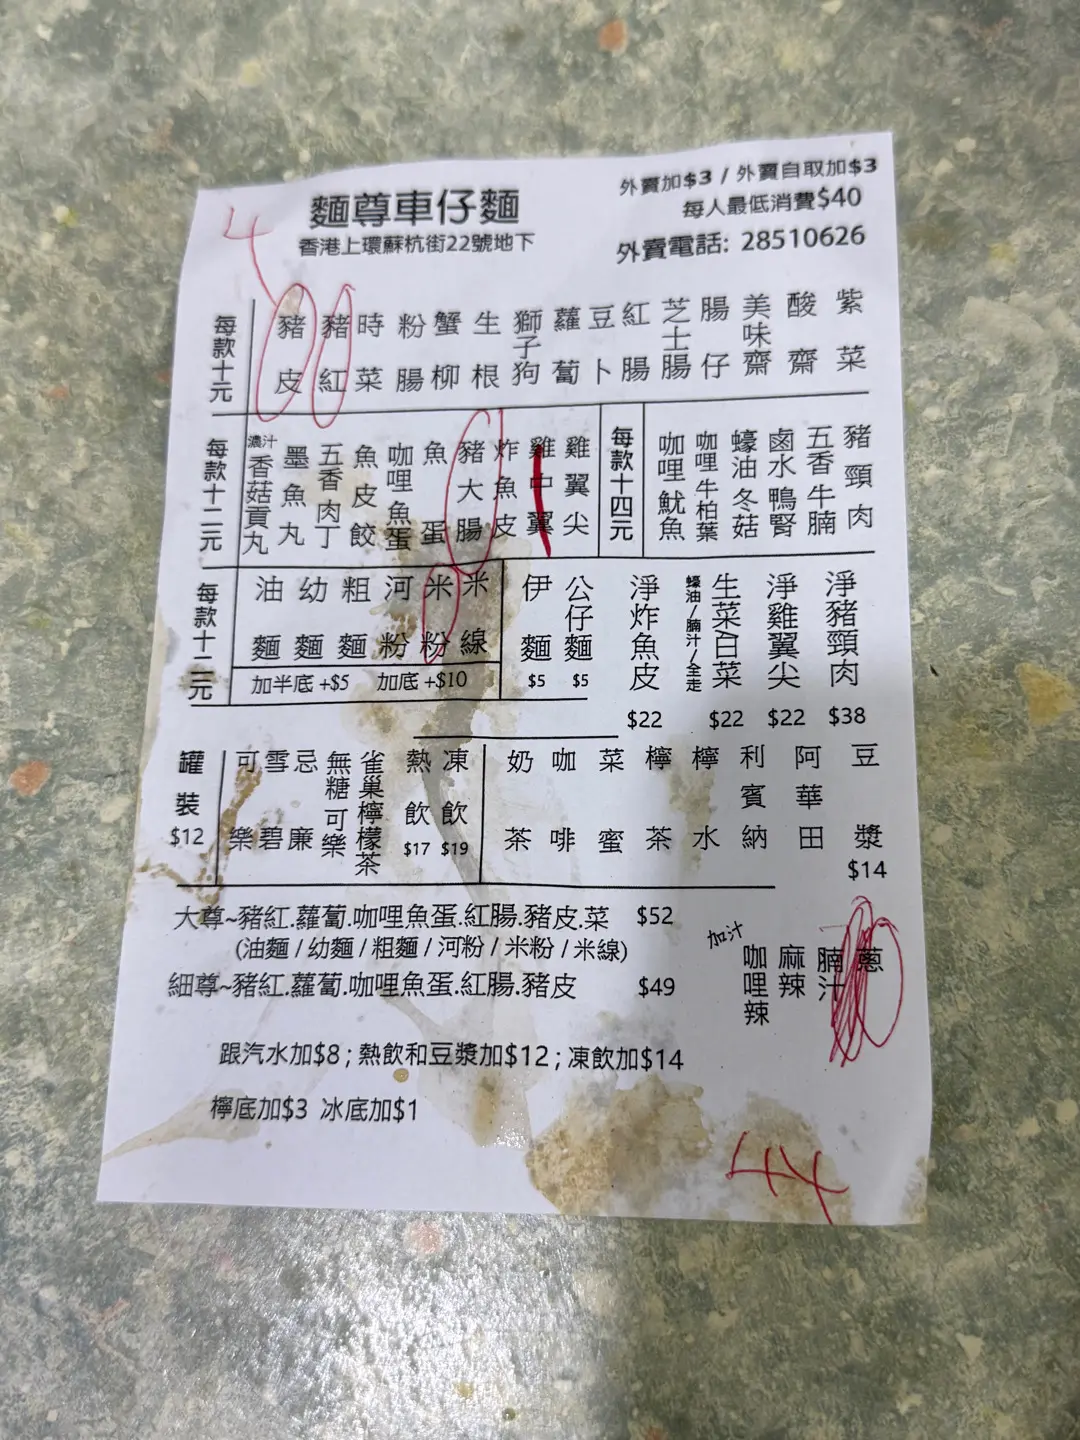 麵尊車仔麵
香港上環蘇杭街22號地下
外賣加$3 / 外賣自取加$3
每人最低消費$40
外賣電話: 28510626
4
每款十元
豬皮
豬紅
時菜
粉腸
蟹柳
生根
獅子狗
蘿蔔
豆卜
紅腸
芝士腸
腸仔
美味齋
酸齋
紫菜
每款十二元
濃汁
香菇貢丸
墨魚丸
五香肉丁
魚皮餃
咖哩魚蛋
魚蛋
豬大腸
炸魚皮
雞中翼
雞翼尖
每款十四元
咖哩魷魚
咖哩牛柏葉
蠔油冬菇
鹵水鴨腎
五香牛腩
豬頸肉
每款十二元
油麵
幼麵
粗麵
河粉
米粉
米線
加半底 +$5 加底 +$10
伊麵 $5
公仔麵 $5
淨炸魚皮 $22
蠔油/腩汁/全走
生菜白菜 $22
淨雞翼尖 $22
淨豬頸肉 $38
罐裝 $12
可樂
雪碧
忌廉
無糖可樂
雀巢檸檬茶
熱飲 $17
凍飲 $19
奶茶
咖啡
菜蜜
檸茶
檸水
利賓納
阿華田
豆漿 $14
大尊~豬紅.蘿蔔.咖哩魚蛋.紅腸.豬皮.菜 $52
(油麵 / 幼麵 / 粗麵 / 河粉 / 米粉 / 米線)
細尊~豬紅.蘿蔔.咖哩魚蛋.紅腸.豬皮 $49
加汁
咖哩辣
麻辣
腩汁
蔥
跟汽水加$8 ; 熱飲和豆漿加$12 ; 凍飲加$14
檸底加$3 冰底加$1
44